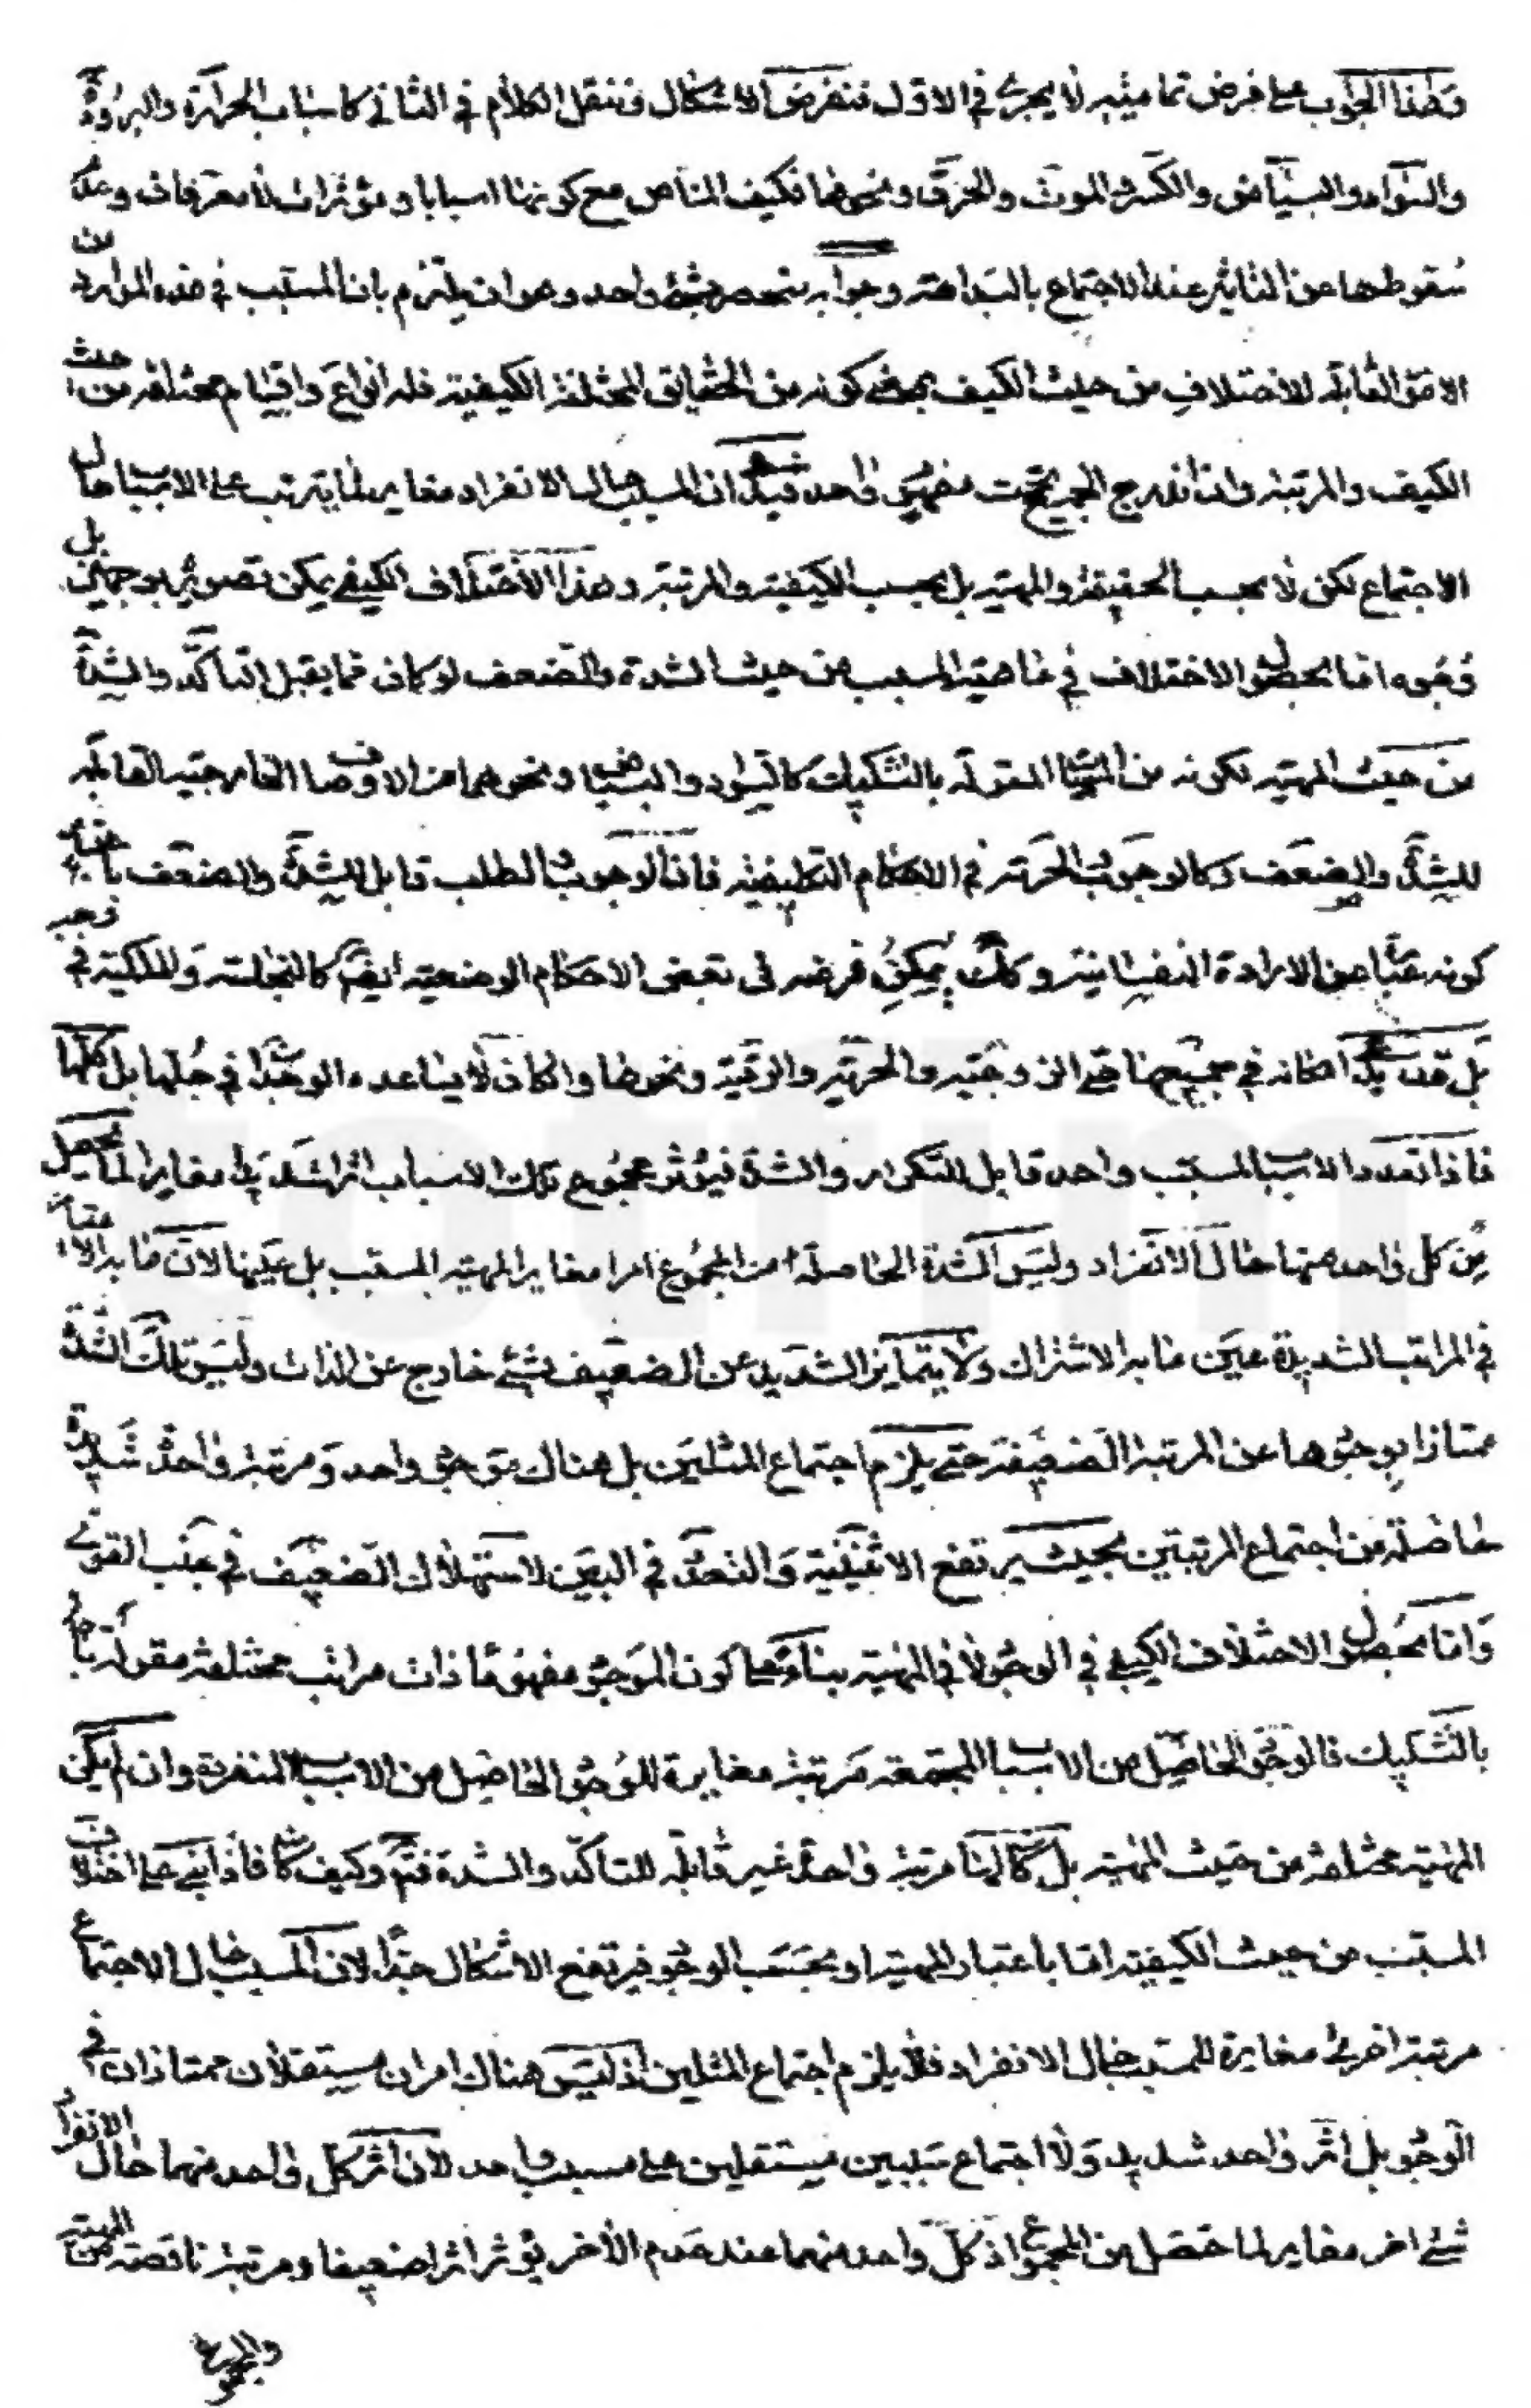 وهذا الجواب على فرض تماميته لا يجرى في الاول فنفرض الاشكال فننقل الكلام في الثانى كاسباب الحرارة والبرودة
والسواد والبياض والكسر والموت والحرق ونحوها فكيف المناص مع كونها اسبابا ومؤثرات لا معرفات وعدم
سقوطها عن التاثير عند الاجتماع بالبداهة وجوابه ينحصر بشئ واحد وهو ان يلتزم بان المسبب في هذه الموارد من
الامور القابلة للاختلاف من حيث الكيف بمعنى كونه من الحقايق المختلفة الكيفية فله انواع واقسام مختلفة من حيث
الكيف والمرتبة وان اندرج الجميع تحت مفهوم واحد فيكون المسبب حال الانفراد مغاير لما يترتب على الاسباب حال
الاجتماع لكن لا بحسب الحقيقة والمهية بل بحسب الكيفية والمرتبة وهذا الاختلاف الكيفى يمكن تصويره بوجهين بل
وجوه اما بحصول الاختلاف في ماهية المسبب من حيث الشدة والضعف لو كان مما يقبل التاكد والشدة
من حيث المهية لكونه من المهيات المقولة بالتشكيك كالسواد والبياض ونحوهما من الاوصاف الخارجية القابلة
للشدة والضعف وكالوجوب والحرمة في الاحكام التكليفية فان الوجوب والطلب قابل للشدة والضعف باعتبار
كونه عبارة عن الارادة النفسانية وكذلك يمكن فرضه فى بعض الاحكام الوضعية ايضا كالنجاسة والملكية في وجه
بل قد يدعى امكانه في جميعها حتى الزوجية والحرية والرقية ونحوها وان كان لا يساعده الوجدان في جلها بل كلها
فاذا تعدد الاسباب لمسبب واحد قابل للتكرار والشدة فيؤثر مجموع تلك الاسباب اثرا شديدا مغايرا لما يحصل
من كل واحد منها حال الانفراد وليس الشدة الحاصلة من المجموع امرا مغايرا لمهية المسبب بل عينها لان ما به الامتياز
في المراتب الشديدة عين ما به الاشتراك ولا يتمايز الشديد عن الضعيف بشئ خارج عن الذات وليس تلك الشدة
ممتازا بوجودها عن المرتبة الضعيفة حتى يلزم اجتماع المثلين بل هناك موجود واحد ومرتبة واحدة شديدة
حاصلة من اجتماع المرتبتين بحيث يرتفع الاثنينية والتعدد في البين لاستهلاك الضعيف في جنب القوى
واما بحصول الاختلاف الكيفى في الوجود لا في المهية بناء على كون الموجود مفهوما ذات مراتب مختلفة مقولة
بالتشكيك فالوجود الحاصل من الاسباب المجتمعة مرتبة مغايرة للوجود الحاصل من الاسباب المنفردة وان لم يكن
المهية مختلفة من حيث المهية بل كانت مرتبة واحدة غير قابلة للتاكد والشدة فتم وكيف كان فاذا بنى على اختلاف
المسبب من حيث الكيفية اما باعتبار المهية او بحسب الوجود فيرتفع الاشكال جدا لان المسبب حال الاجتماع
مرتبة اخرى مغايرة للمسبب حال الانفراد فلا يلزم اجتماع المثلين اذ ليس هناك امران مستقلان ممتازان في
الوجود بل اثر واحد شديد ولا اجتماع سببين مستقلين على مسبب واحد لان اثر كل واحد منهما حال الانفراد
شئ اخر مغاير لما حصل من المجموع اذ كل واحد منهما عند عدم الاخر يؤثر اثرا ضعيفا ومرتبة ناقصة من المهية
والمجموع